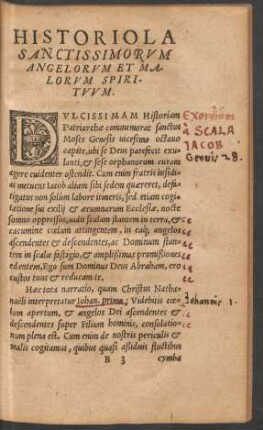 HISTORIOLA
SANCTISSIMORVM
ANGELORVM ET MA-
LORVM SPIRI-
TVVM.
DVLCISSIMAM Historiam
Patriarchæ commemorat sanctus
Moses Genesis vicesimo octauo
capite, ubi se Deus patefecit exu-
lanti, & sese orphanorum curam
agere euidenter ostendit. Cum enim fratris insidi-
as metuens Iacob aliam sibi sedem quæreret, defa-
tigatus non solùm labore itineris, sed etiam cogi-
tatione sui exilij & ærumnarum Ecclesiæ, nocte
somno oppressus, uidit scalam stantem in terra, &
cacumine cœlum attingentem, in eaq; angelos
ascendentes & descendentes, ac Dominum stan-
tem in scalæ fastigio, & amplissimas promissiones
edentem, Ego sum Dominus Deus Abraham, ero
custos tuus & reducam te.
Hæc tota narratio, quam Christus Natha-
naëli interpretatur Iohan. primo, Videbitis cœ-
lum apertum, & angelos Dei ascendentes &
descendentes super Filium hominis, consolatio-
num plena est. Cum enim de nostris periculis &
malis cogitamus, quibus quasi assiduis fluctibus
B 3 cymba
Exordium
à SCALA
IACOB
Genesis 28.
Johannis 1.